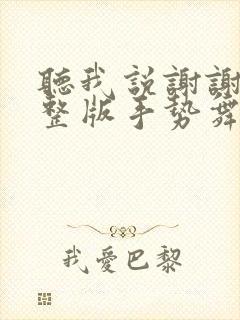 聽我説謝謝
整版手勢舞
我愛巴黎